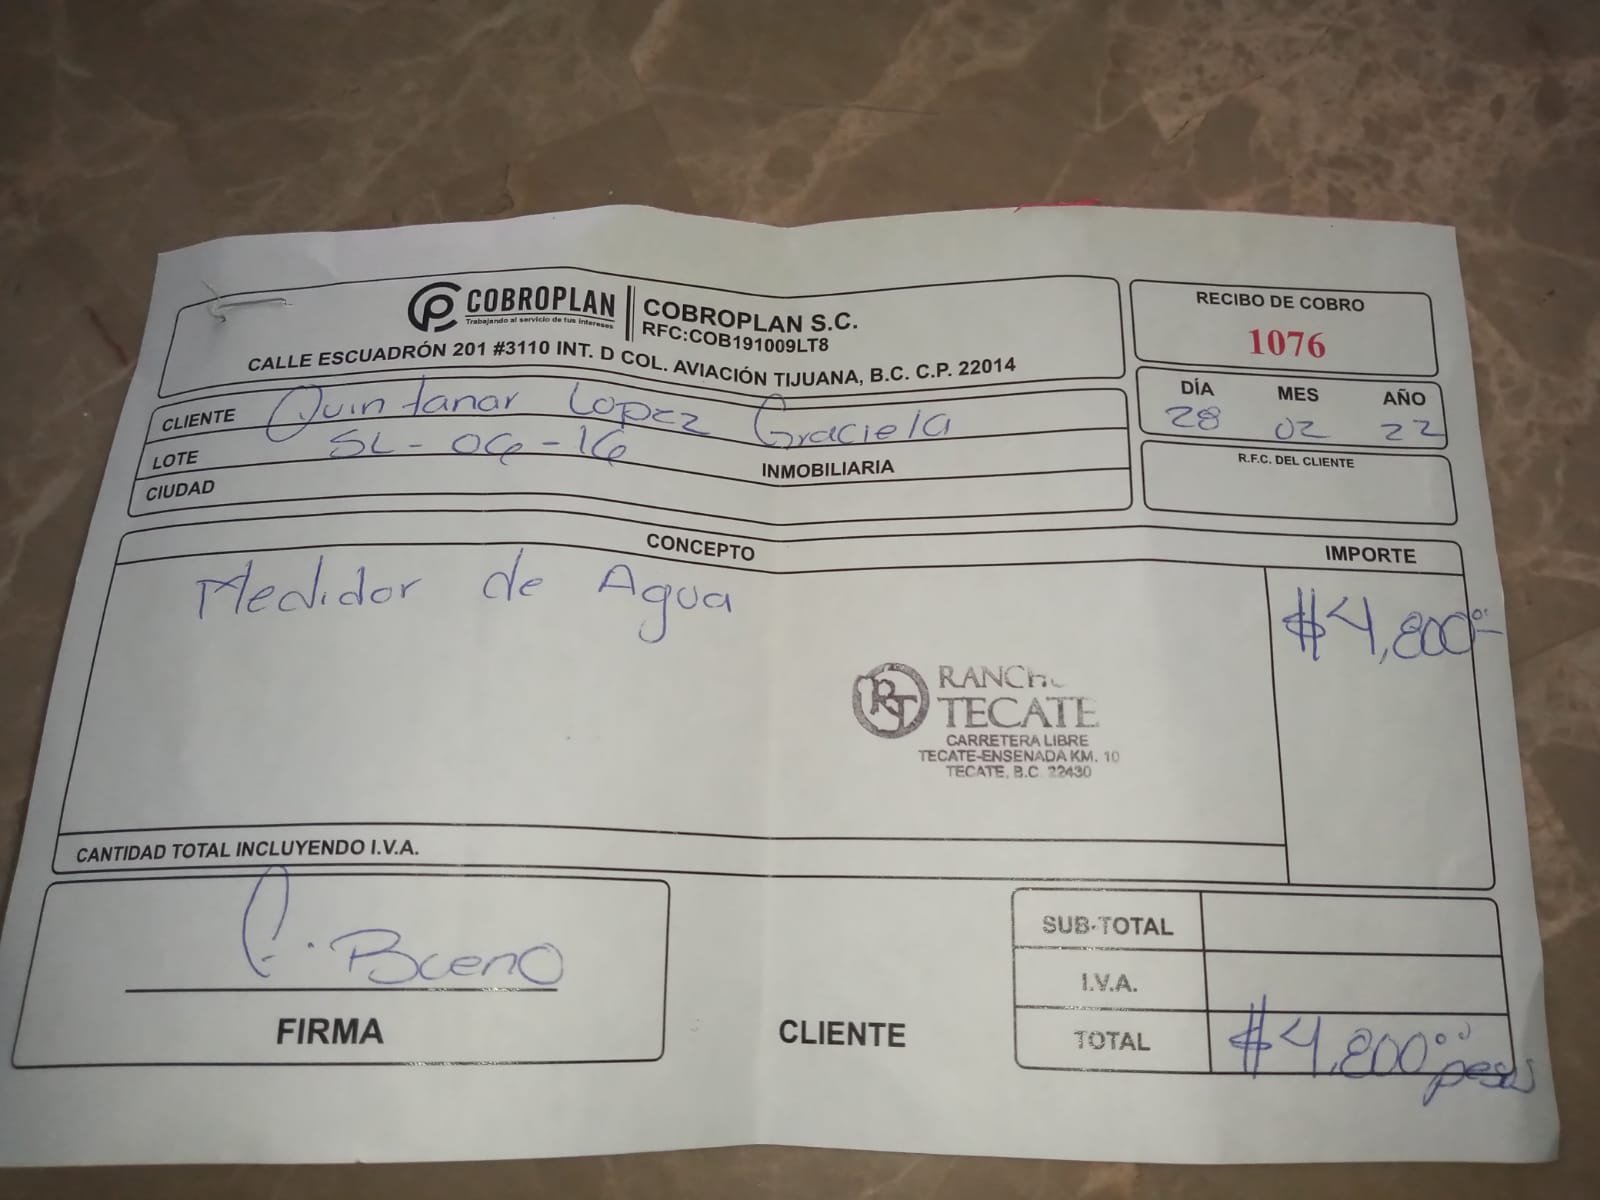 COBROPLAN
Trabajando al servicio de tus intereses
COBROPLAN S.C.
RFC:COB191009LT8
CALLE ESCUADRÓN 201 #3110 INT. D COL. AVIACIÓN TIJUANA, B.C. C.P. 22014
RECIBO DE COBRO
1076
DÍA MES AÑO
28 02 22
R.F.C. DEL CLIENTE
CLIENTE Quintanar Lopez Graciela
LOTE SL-06-16 INMOBILIARIA
CIUDAD
CONCEPTO IMPORTE
Medidor de Agua $4,800.00
RANCHO
TECATE
CARRETERA LIBRE
TECATE-ENSENADA KM. 10
TECATE, B.C. 22430
CANTIDAD TOTAL INCLUYENDO I.V.A.
Bueno
FIRMA
CLIENTE
SUB-TOTAL
I.V.A.
TOTAL $4,800.00 pesos